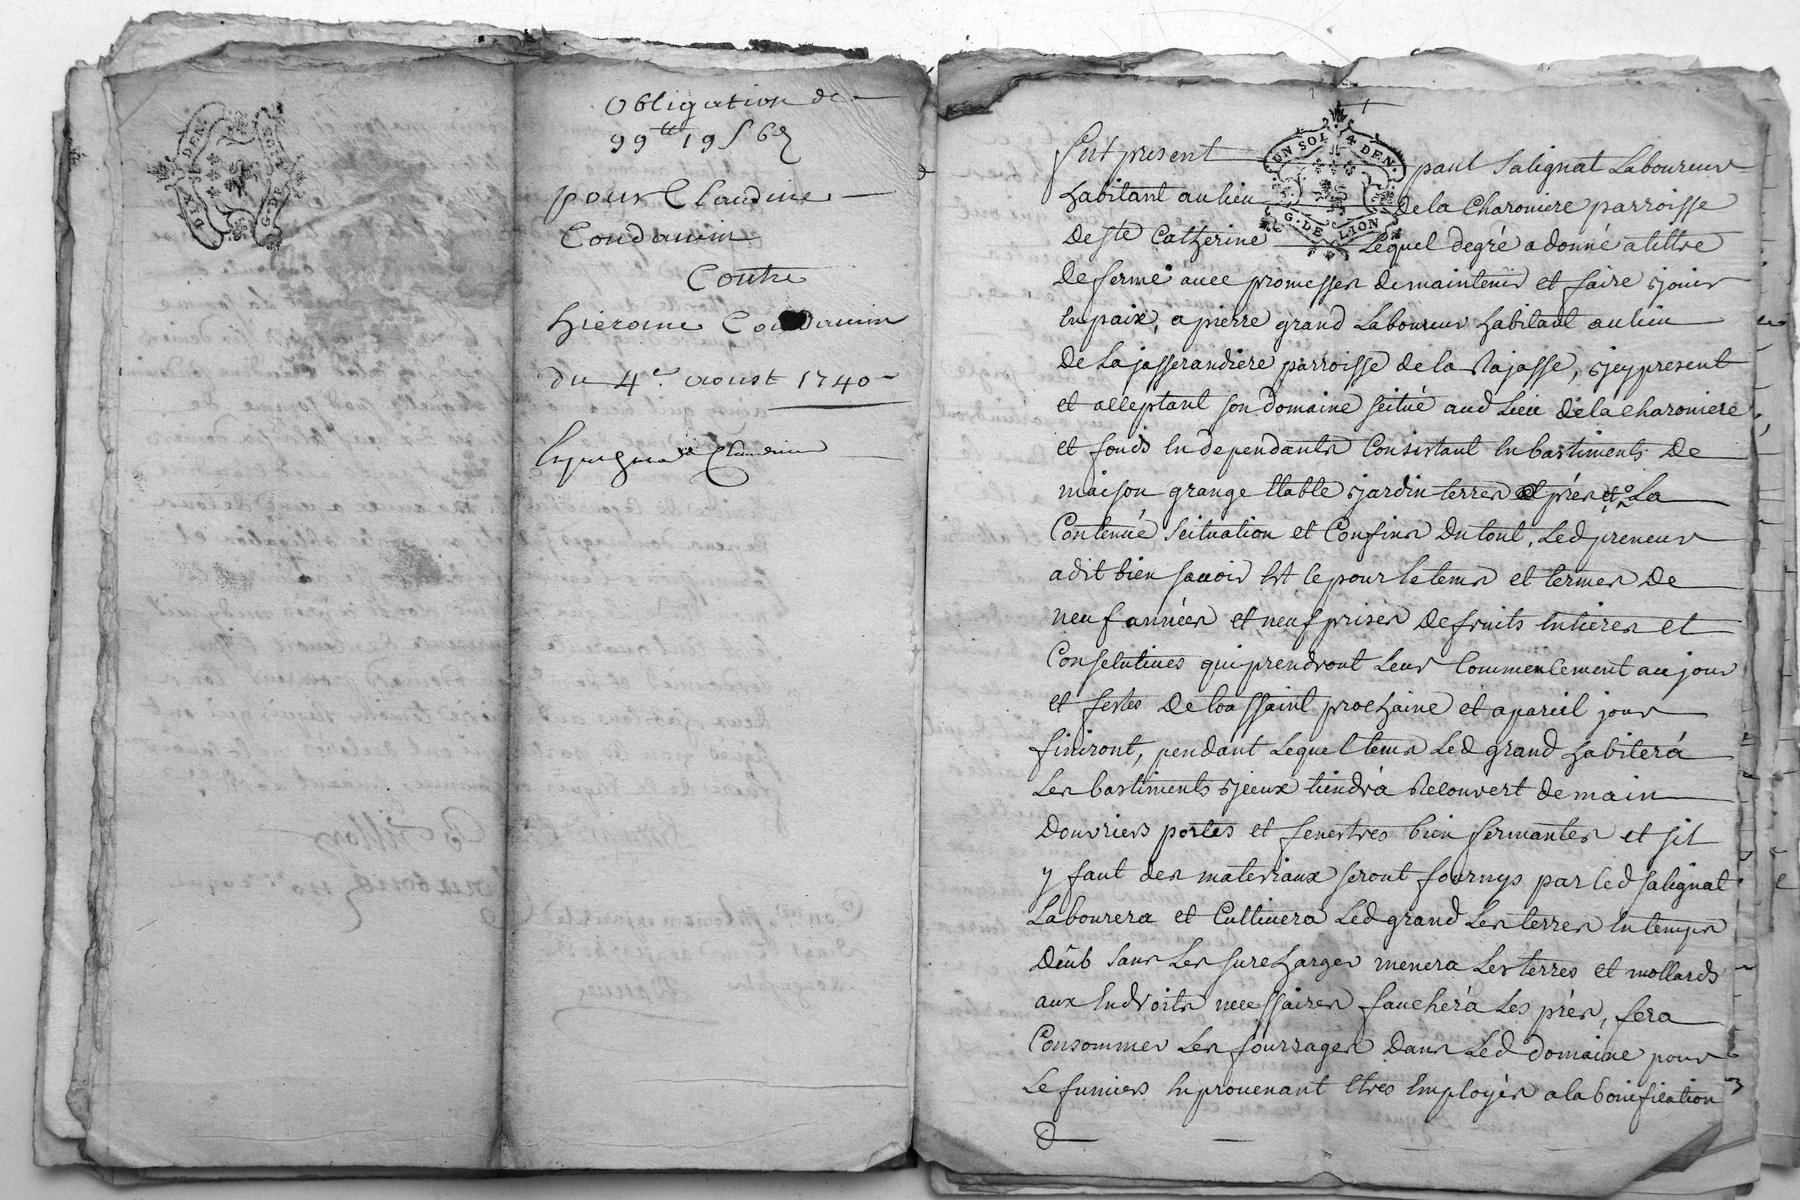 DIX DEN
G. DE
Obligation de
99tt 19 s 6 d
pour Claudine
Coudamin
Contre
hierome Coudamin
du 4e aoust 1740
UN SOL 4 DEN.
G. DE LION
Fut present paul Salignat Laboureur
habitant au lieu de la Charoniere parroisse
de ste Catherine Lequel degré a donné a tiltre
de ferme avec promesses de maintenir et faire jouir
en paix, a pierre grand Laboureur habitant au lieu
de La jasserandiere parroisse de la Rajasse, jcy present
et acceptant son domaine scitué aud Lieu de la charoniere
et fonds en dependants Consistant en bastiments de
maison grange Etable jardin terres et prés La
Contenue scituation et Confins du tout, Led preneur
a dit bien savoir Et ce pour le tems et termes de
neuf années et neuf prises de fruits entieres et
Consecutives qui prendront Leur Commencement au jour
et festes de toassaint prochaine et a pareil jour
finiront, pendant Lequel tems Led grand habitera
Les bastiments jceux tiendra Recouvert de main
douvriers portes et fenestres bien fermantes et sil
y faut des materiaux seront fournys par led salignat
Labourera et Cultivera Led grand Les terres en temps
deub sans Les surcharger menera Les terres et mollards
aux Endroits necessaires fauchera Les prés, fera
Consommer Les fourrages dans Led domaine pour
Le fumiers en provenant Etres Employés a la bonification